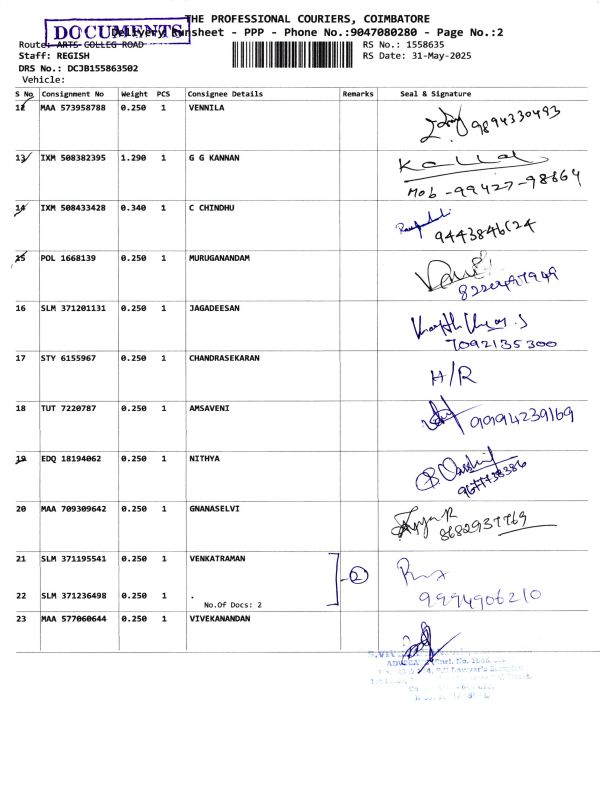 THE PROFESSIONAL COURIERS, COIMBATORE
DOCUMENTS
Delivery Runsheet - PPP - Phone No.:9047080280 - Page No.:2
Route: ARTS COLLEG ROAD
RS No.: 1558635
Staff: REGISH
RS Date: 31-May-2025
DRS No.: DCJB155863502
Vehicle:
S No Consignment No Weight PCS Consignee Details Remarks Seal & Signature
12 MAA 573958788 0.250 1 VENNILA
9894330493
13 IXM 508382395 1.290 1 G G KANNAN
Mob -99427-98864
14 IXM 508433428 0.340 1 C CHINDHU
15 POL 1668139 0.250 1 MURUGANANDAM
16 SLM 371201131 0.250 1 JAGADEESAN
7092135300
17 STY 6155967 0.250 1 CHANDRASEKARAN
H/R
18 TUT 7220787 0.250 1 AMSAVENI
9994239169
19 EDQ 18194062 0.250 1 NITHYA
9677738386
20 MAA 709309642 0.250 1 GNANASELVI
8682937769
21 SLM 371195541 0.250 1 VENKATRAMAN
2
22 SLM 371236498 0.250 1 .
9994906210
No.Of Docs: 2
23 MAA 577060644 0.250 1 VIVEKANANDAN